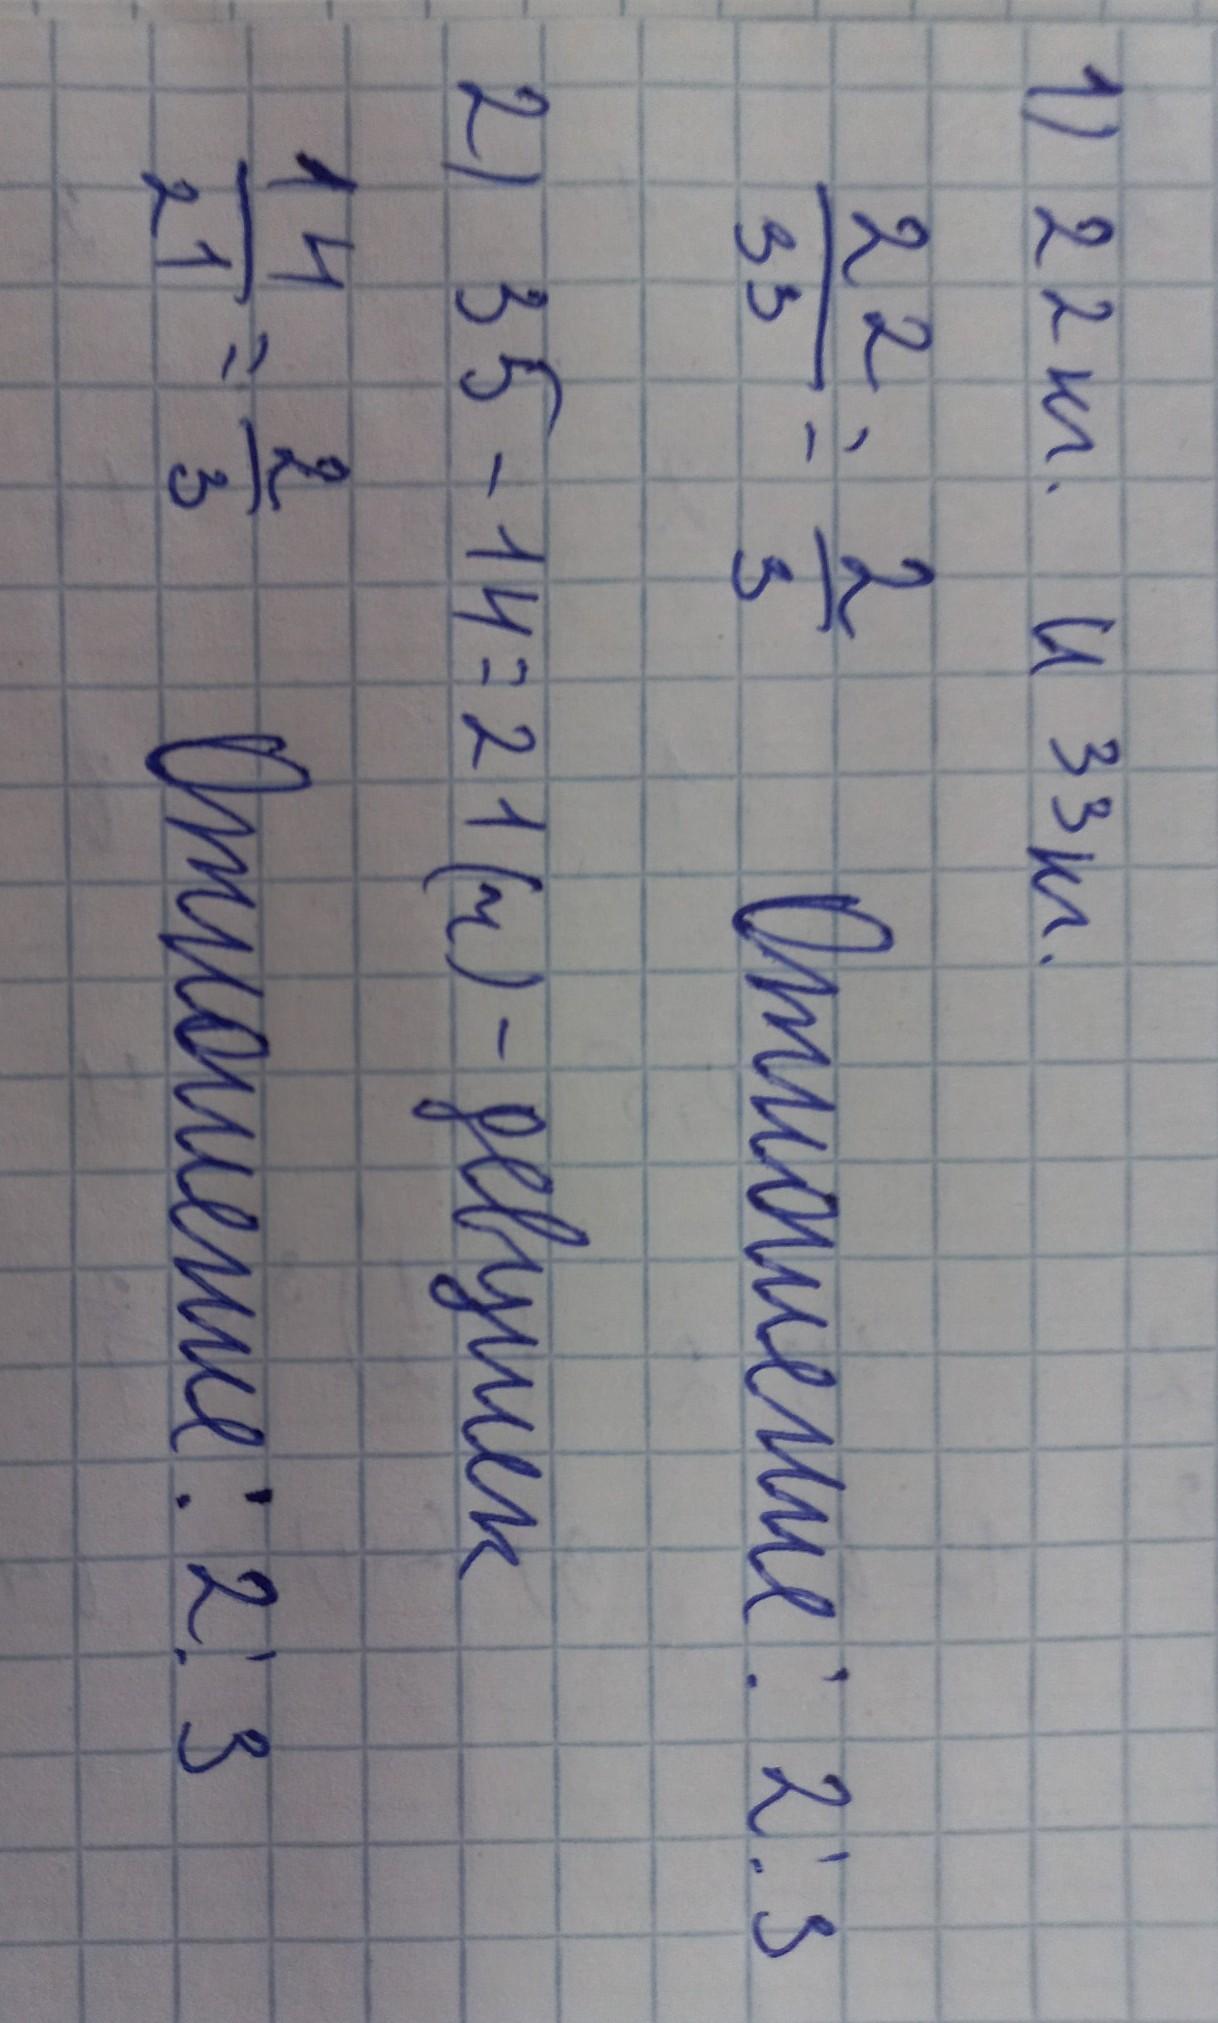 1) 22 кл. и 33 кл.
22/33 = 2/3 Отношение: 2:3
2) 35 - 14 = 21 (ч) - девушек
14/21 = 2/3 Отношение: 2:3